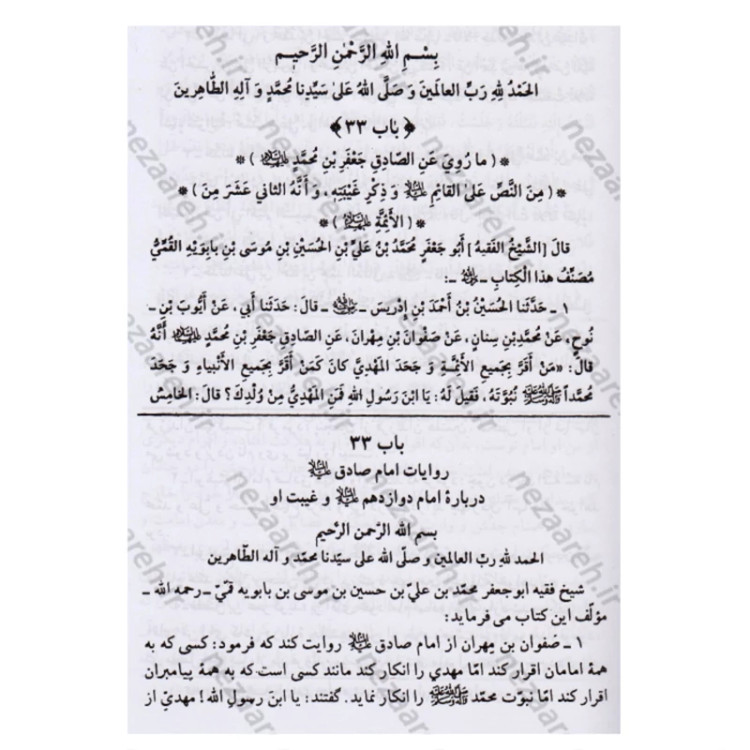 بِسْمِ اللهِ الرَّحْمٰنِ الرَّحِيمِ
الحَمْدُ لِلّهِ رَبِّ العالَمينَ وَ صَلَّى اللهُ عَلىٰ سَيِّدِنا مُحَمَّدٍ وَ آلِهِ الطّاهِرينَ
﴿ باب ٣٣ ﴾
* ( ما رُوِيَ عَنِ الصّادِقِ جَعْفَرِ بْنِ مُحَمَّدٍ ) *
* ( مِنَ النَّصِّ عَلَى القائِمِ وَ ذِكْرِ غَيْبَتِهِ ، وَ أَنَّهُ الثاني عَشَرَ مِنَ ) *
* ( الأَئِمَّةِ ) *
قالَ [الشَّيْخُ الفَقيهُ] أَبُو جَعْفَرٍ مُحَمَّدُ بْنُ عَلِيِّ بْنِ الحُسَيْنِ بْنِ مُوسَى بْنِ بابَوَيْهِ القُمِّيُّ
مُصَنِّفُ هٰذَا الْكِتابِ ـ ـ :
١ ـ حَدَّثَنا الحُسَيْنُ بْنُ أَحْمَدَ بْنِ إِدْريسَ ـ ـ قالَ: حَدَّثَنا أَبي، عَنْ أَيُّوبَ بْنِ ـ
نُوحٍ، عَنْ مُحَمَّدِبْنِ سِنانٍ، عَنْ صَفْوانَ بْنِ مِهْرانَ، عَنِ الصّادِقِ جَعْفَرِ بْنِ مُحَمَّدٍ أَنَّهُ
قالَ: «مَنْ أَقَرَّ بِجَميعِ الأَئِمَّةِ وَ جَحَدَ المَهْدِيَّ كانَ كَمَنْ أَقَرَّ بِجَميعِ الأَنْبِياءِ وَ جَحَدَ
مُحَمَّداً ﷺ نُبُوَّتَهُ، فَقيلَ لَهُ: يَا ابْنَ رَسُولِ اللهِ فَمَنِ المَهْدِيُّ مِنْ وُلْدِكَ؟ قالَ: الخامِسُ
باب ٣٣
روایات امام صادق
دربارهٔ امام دوازدهم و غیبت او
بسم الله الرّحمن الرّحیم
الحمد للهِ ربّ العالمین و صلّی الله علی سیّدنا محمّد و آله الطّاهرین
شیخ فقیه ابوجعفر محمّد بن علیّ بن حسین بن موسی بن بابویه قمّیّ ـ رحمه الله ـ
مؤلّف این کتاب می فرماید:
١ ـ صفوان بن مِهران از امام صادق روایت کند که فرمود: کسی که به
همهٔ امامان اقرار کند امّا مهدی را انکار کند مانند کسی است که به همهٔ پیامبران
اقرار کند امّا نبوّت محمّد ﷺ را انکار نماید. گفتند: یا ابنَ رسولِ الله! مهدیّ از
nezaareh.ir